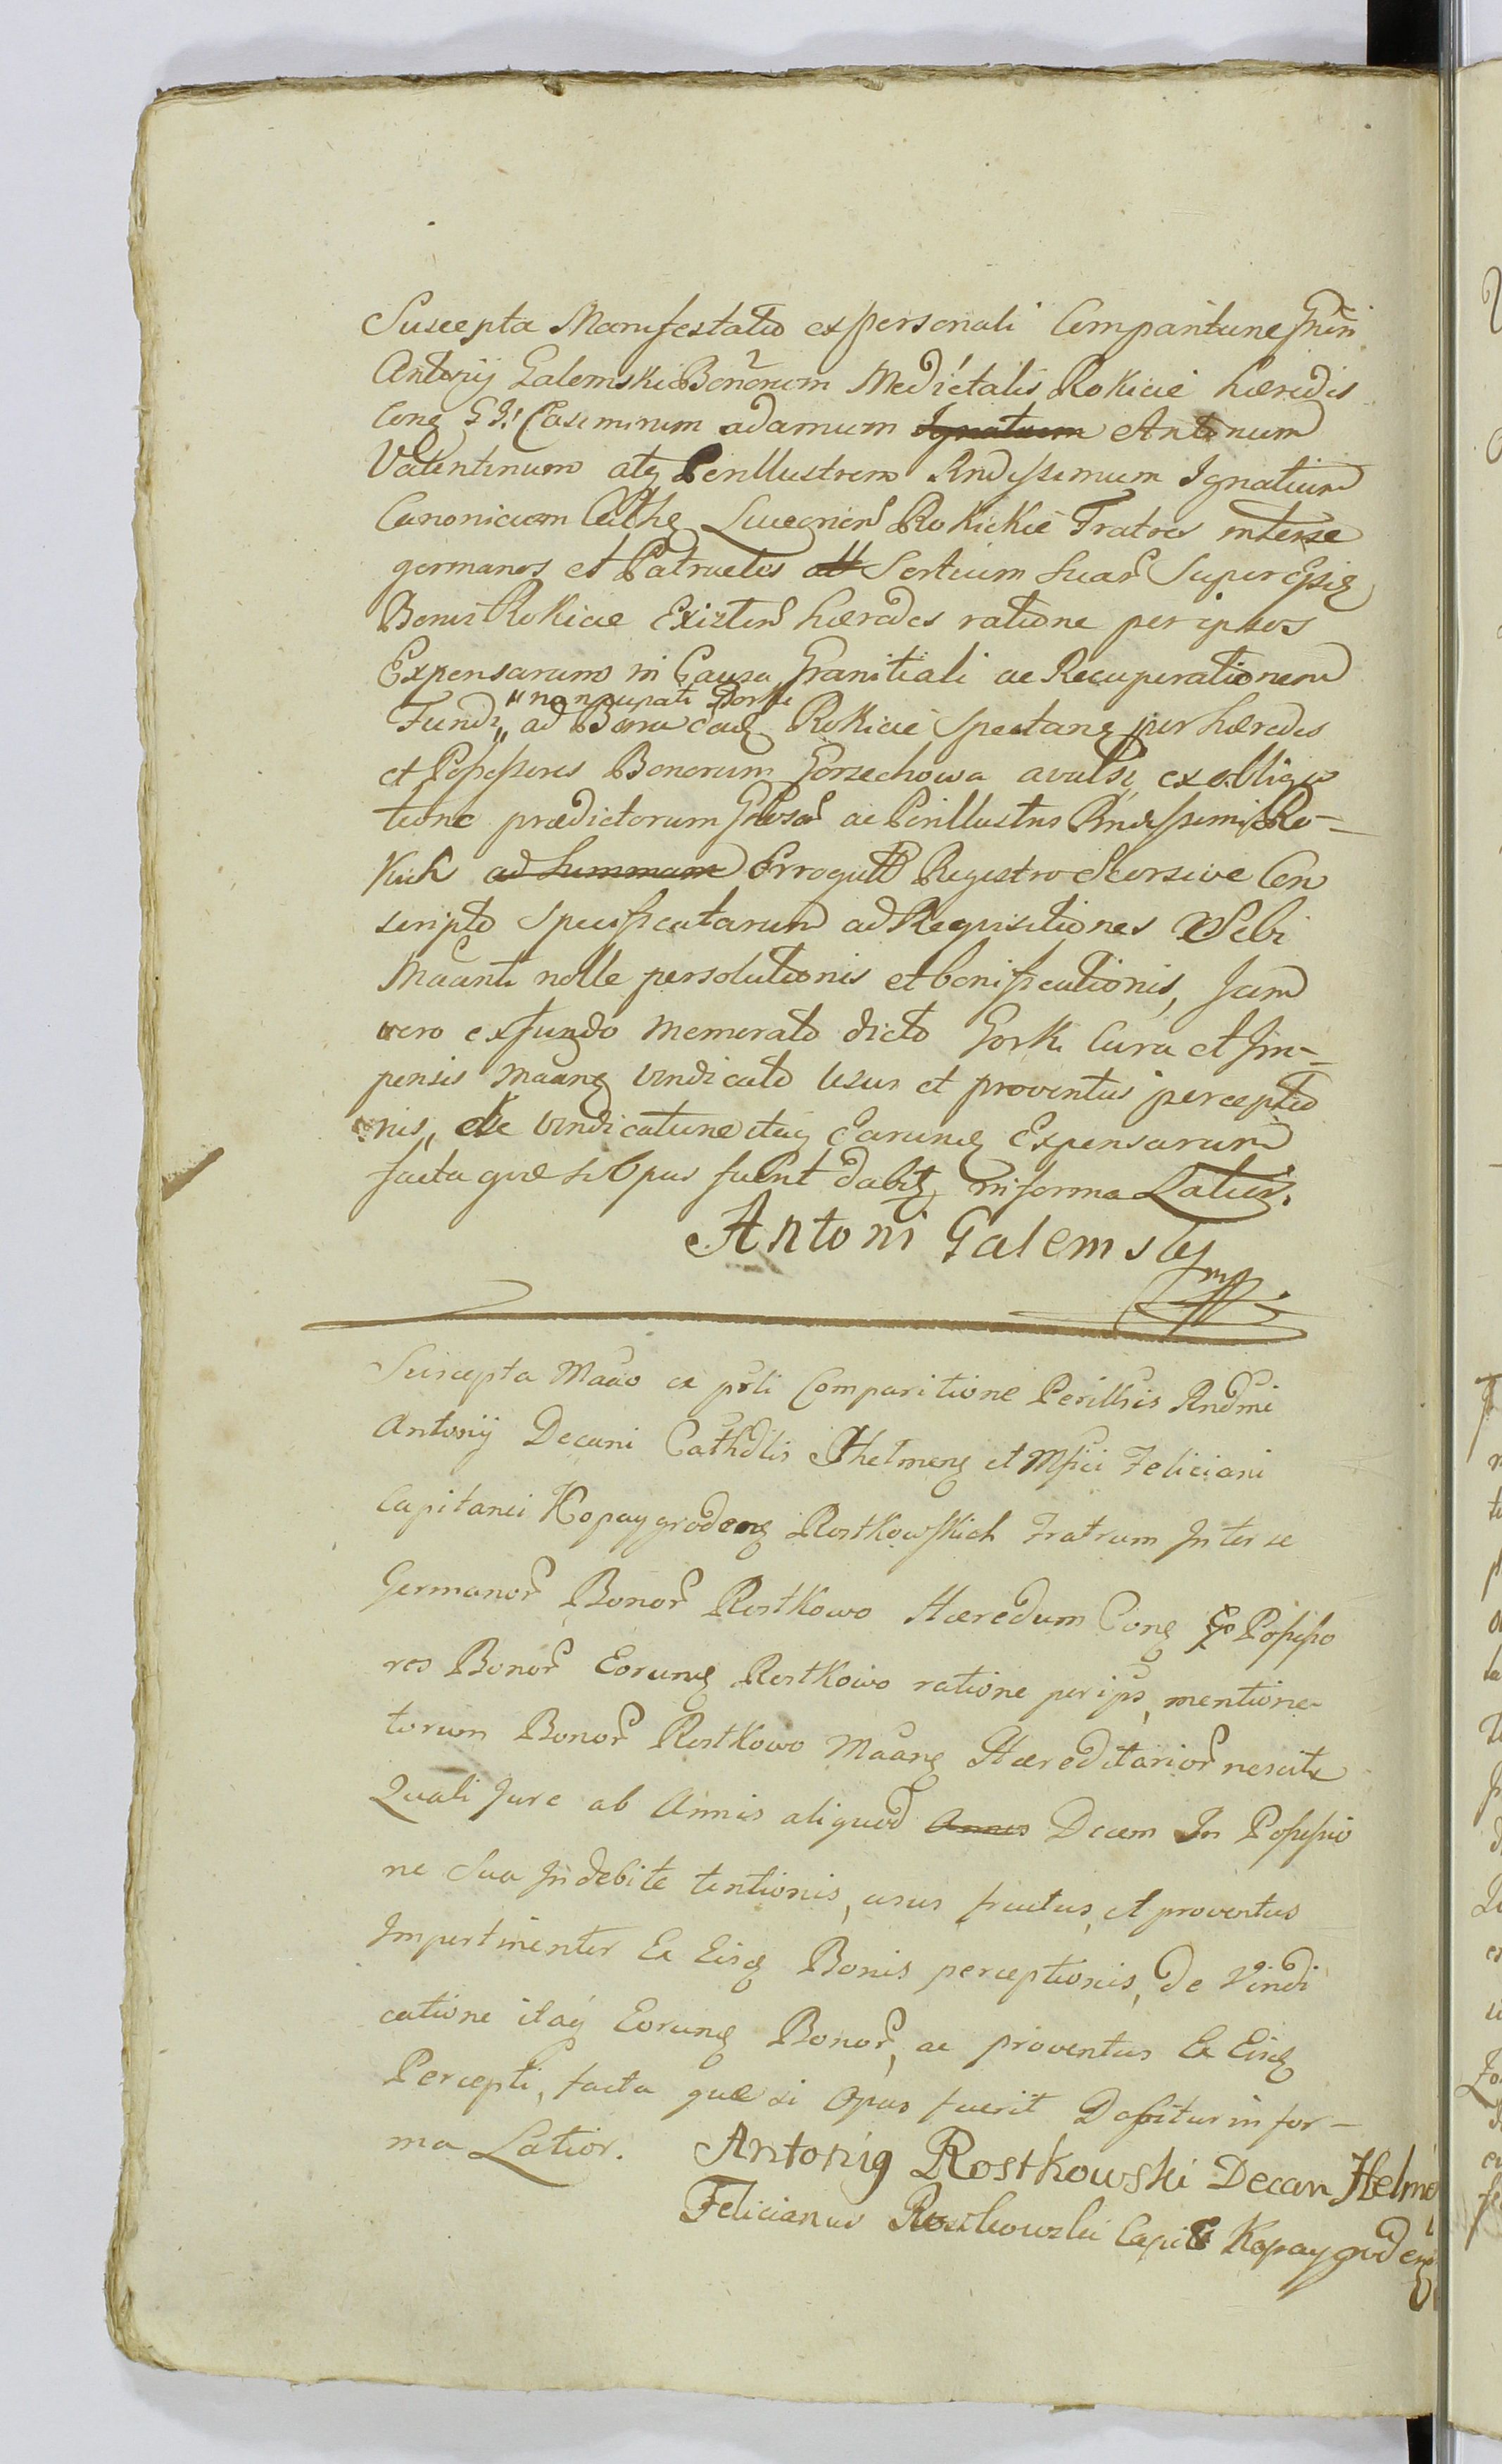 Suscepta Manifestatio ex personali Comparitione Gnsi
Antonij Galemski Bonorum Medietatis Rokicie hæredis
Cong GG: Casimirum adamum Ignatium Antonum
Valentinum atq Perillustrem Rndissimum Ignatium
Canonicum Cathg Rokickie Fratres interse
germanos et Patrueles att Sortium suar Super ejsdq
Bonis Rokicie Existen hæredes ratione per ipsos
Expensarum in Causa Granitiali ac Recuperationem
Fundi „ ad Bona eadq Rokicie Spectang per hæredes
"nonnupati Gorki
et Possessores Bonorum Gorzechowa avulsi, ex obliga
tione prædictorum Gnbosor ac Perillustris Rndissimi Ro-
kick ad Summam Errogatt Registro Seorsive Con
scripto Specificatarum ad Requisitiones Sibi
Maanti nolle persolutionis et bonificationis, Jam
vero ex fundo memorato dicto Gorki Cura et Im-
pensis Maang vindicato usus et proventus perceptio
nis„ de vindicatione itaq Earundq Expensarum
facta quæ si Opus fuerit dabitq in forma Latiori.
Antoni Galemsky
mp
Suscepta Maao ex prli Comparitione Perillris Rndmi
Antonij Decani Cathdlis Chelmeng et Mfici Feliciani
Capitanei Kopaygrodeng Rostkowskich Fratrum Inter se
Germanor Bonor Rostkowo Hæredum Cong Possesso
res Bonor Eorundq Rostkowo ratione per ips, mentiona
torum Bonor Rostkowo Maang Hæreditarior nescitr
Quali Jure ab Annis aliquod Annis Decem In Possessio
ne Sua Indebite tentionis, usus fructus, et proventus
Impertinenter Ex Eisdq Bonis perceptionis, De Vindi
catione itaq Eorundq Bonor, ac proventus Ex Eisdq
Percepti, facta quæ si Opus fuerit Dabitur in for-
ma Latior.
Antonig Rostkowski Decan Helme
Felicianus Rostkowski Capit Kopaygrodeng